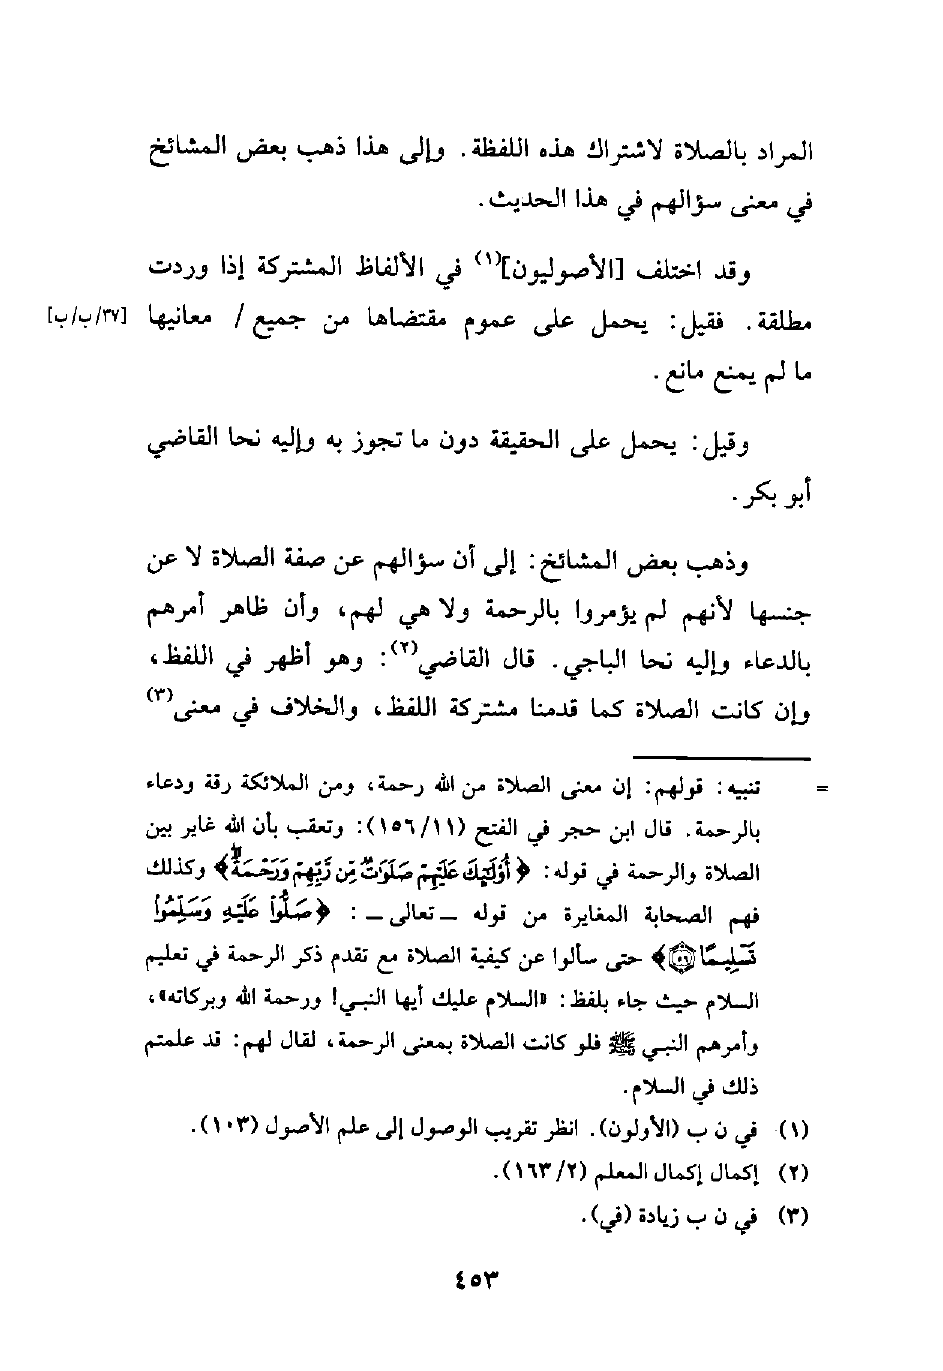 المراد بالصلاة لاشتراك هذه اللفظة. وإلى هذا ذهب بعض المشائخ
في معنى سؤالهم في هذا الحديث.
وقد اختلف [الأصوليون](١) في الألفاظ المشتركة إذا وردت
مطلقة. فقيل: يحمل على عموم مقتضاها من جميع / معانيها [٣٧/ب/ب]
ما لم يمنع مانع.
وقيل: يحمل على الحقيقة دون ما تجوز به وإليه نحا القاضي
أبو بكر.
وذهب بعض المشائخ: إلى أن سؤالهم عن صفة الصلاة لا عن
جنسها لأنهم لم يؤمروا بالرحمة ولا هي لهم، وأن ظاهر أمرهم
بالدعاء وإليه نحا الباجي. قال القاضي(٢): وهو أظهر في اللفظ،
وإن كانت الصلاة كما قدمنا مشتركة اللفظ، والخلاف في معنى(٣)
= تنبيه: قولهم: إن معنى الصلاة من الله رحمة، ومن الملائكة رقة ودعاء
بالرحمة. قال ابن حجر في الفتح (١٥٦/١١): وتعقب بأن الله غاير بين
الصلاة والرحمة في قوله: ﴿أُوْلَٰٓئِكَ عَلَيۡهِمۡ صَلَوَٰتٞ مِّن رَّبِّهِمۡ وَرَحۡمَةٞۖ﴾ وكذلك
فهم الصحابة المغايرة من قوله ـ تعالى ـ: ﴿صَلُّواْ عَلَيۡهِ وَسَلِّمُواْ
تَسۡلِيمًا ۝٥٦﴾ حتى سألوا عن كيفية الصلاة مع تقدم ذكر الرحمة في تعليم
السلام حيث جاء بلفظ: «السلام عليك أيها النبي! ورحمة الله وبركاته»،
وأمرهم النبي ﷺ فلو كانت الصلاة بمعنى الرحمة، لقال لهم: قد علمتم
ذلك في السلام.
(١) في ن ب (الأولون). انظر تقريب الوصول إلى علم الأصول (١٠٣).
(٢) إكمال إكمال المعلم (١٦٣/٢).
(٣) في ن ب زيادة (في).
٤٥٣